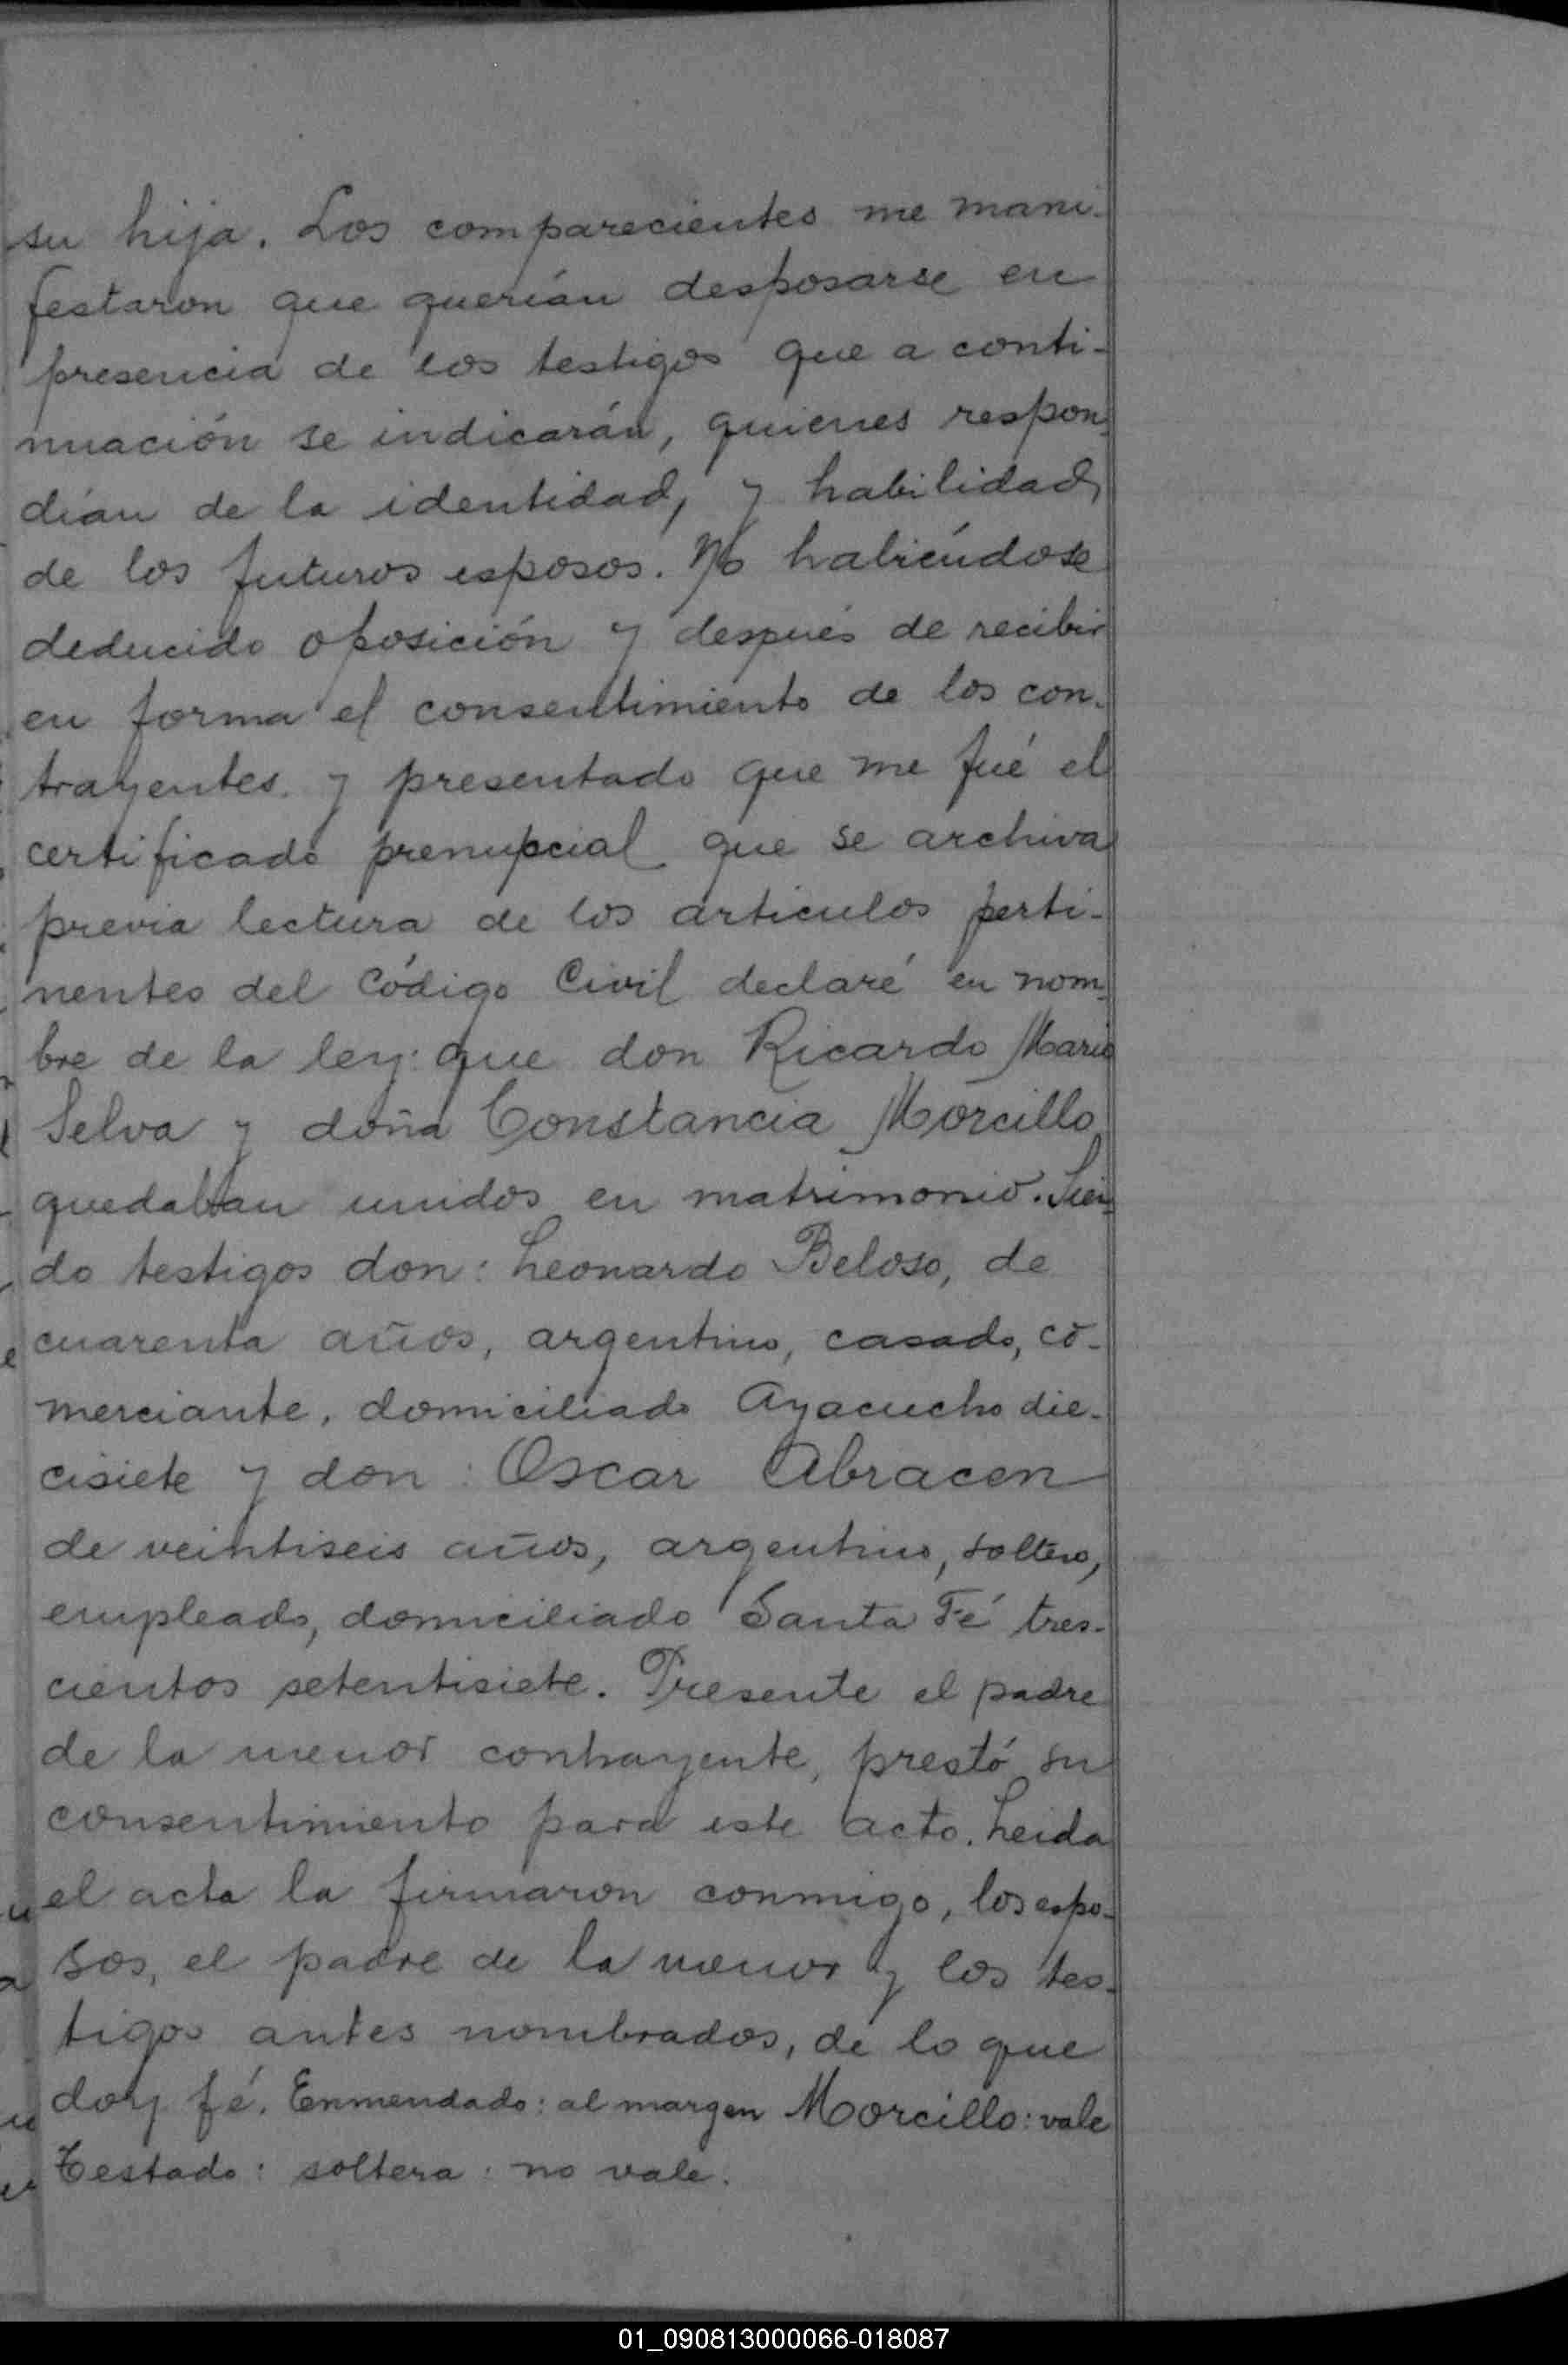 su hija. Los comparecientes me mani-
festaron que querían desposarse en
presencia de los testigos que a conti-
nuación se indicarán, quienes respon-
dían de la identidad, y habilidad
de los futuros esposos. No habiéndose
deducido oposición y después de recibir
en forma el consentimiento de los con-
trayentes y presentado que me fué el
certificado prenupcial que se archiva
previa lectura de los articulos perti-
nentes del Código Civil declaré en nom-
bre de la ley: que don Ricardo Mario
Selva y doña Constancia Morcillo
quedaban unidos en matrimonio. Sien-
do testigos don: Leonardo Beloso, de
cuarenta años, argentino, casado, co-
merciante, domiciliado Ayacucho die-
cisiete y don: Oscar Abracen
de veintiseis años, argentino, soltero,
empleado, domiciliado Santa Fé tres-
cientos setentisiete. Presente el padre
de la menor contrayente, prestó su
consentimiento para este acto. Leida
el acta la firmaron conmigo, los espo-
sos, el padre de la menor y los tes-
tigos antes nombrados, de lo que
doy fé. Enmendado: al margen Morcillo: vale
Testado: soltera: no vale.
01_090813000066-018087